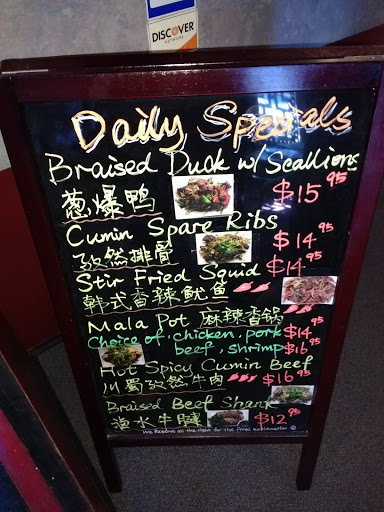 DISCOVER
NETWORK
Daily Specials
Braised Duck w/ Scallions
葱爆鸭 $15.95
Cumin Spare Ribs
孜然排骨 $14.95
Stir Fried Squid $14.95
韩式香辣鱿鱼
Mala Pot 麻辣香锅 $14.95
Choice of, chicken, pork
beef, shrimp $16.95
Hot Spicy Cumin Beef
川蜀孜然牛肉 $16.95
Braised Beef Shank
卤水牛腱 $12.95
We Reserve all the right for the final explanation ©